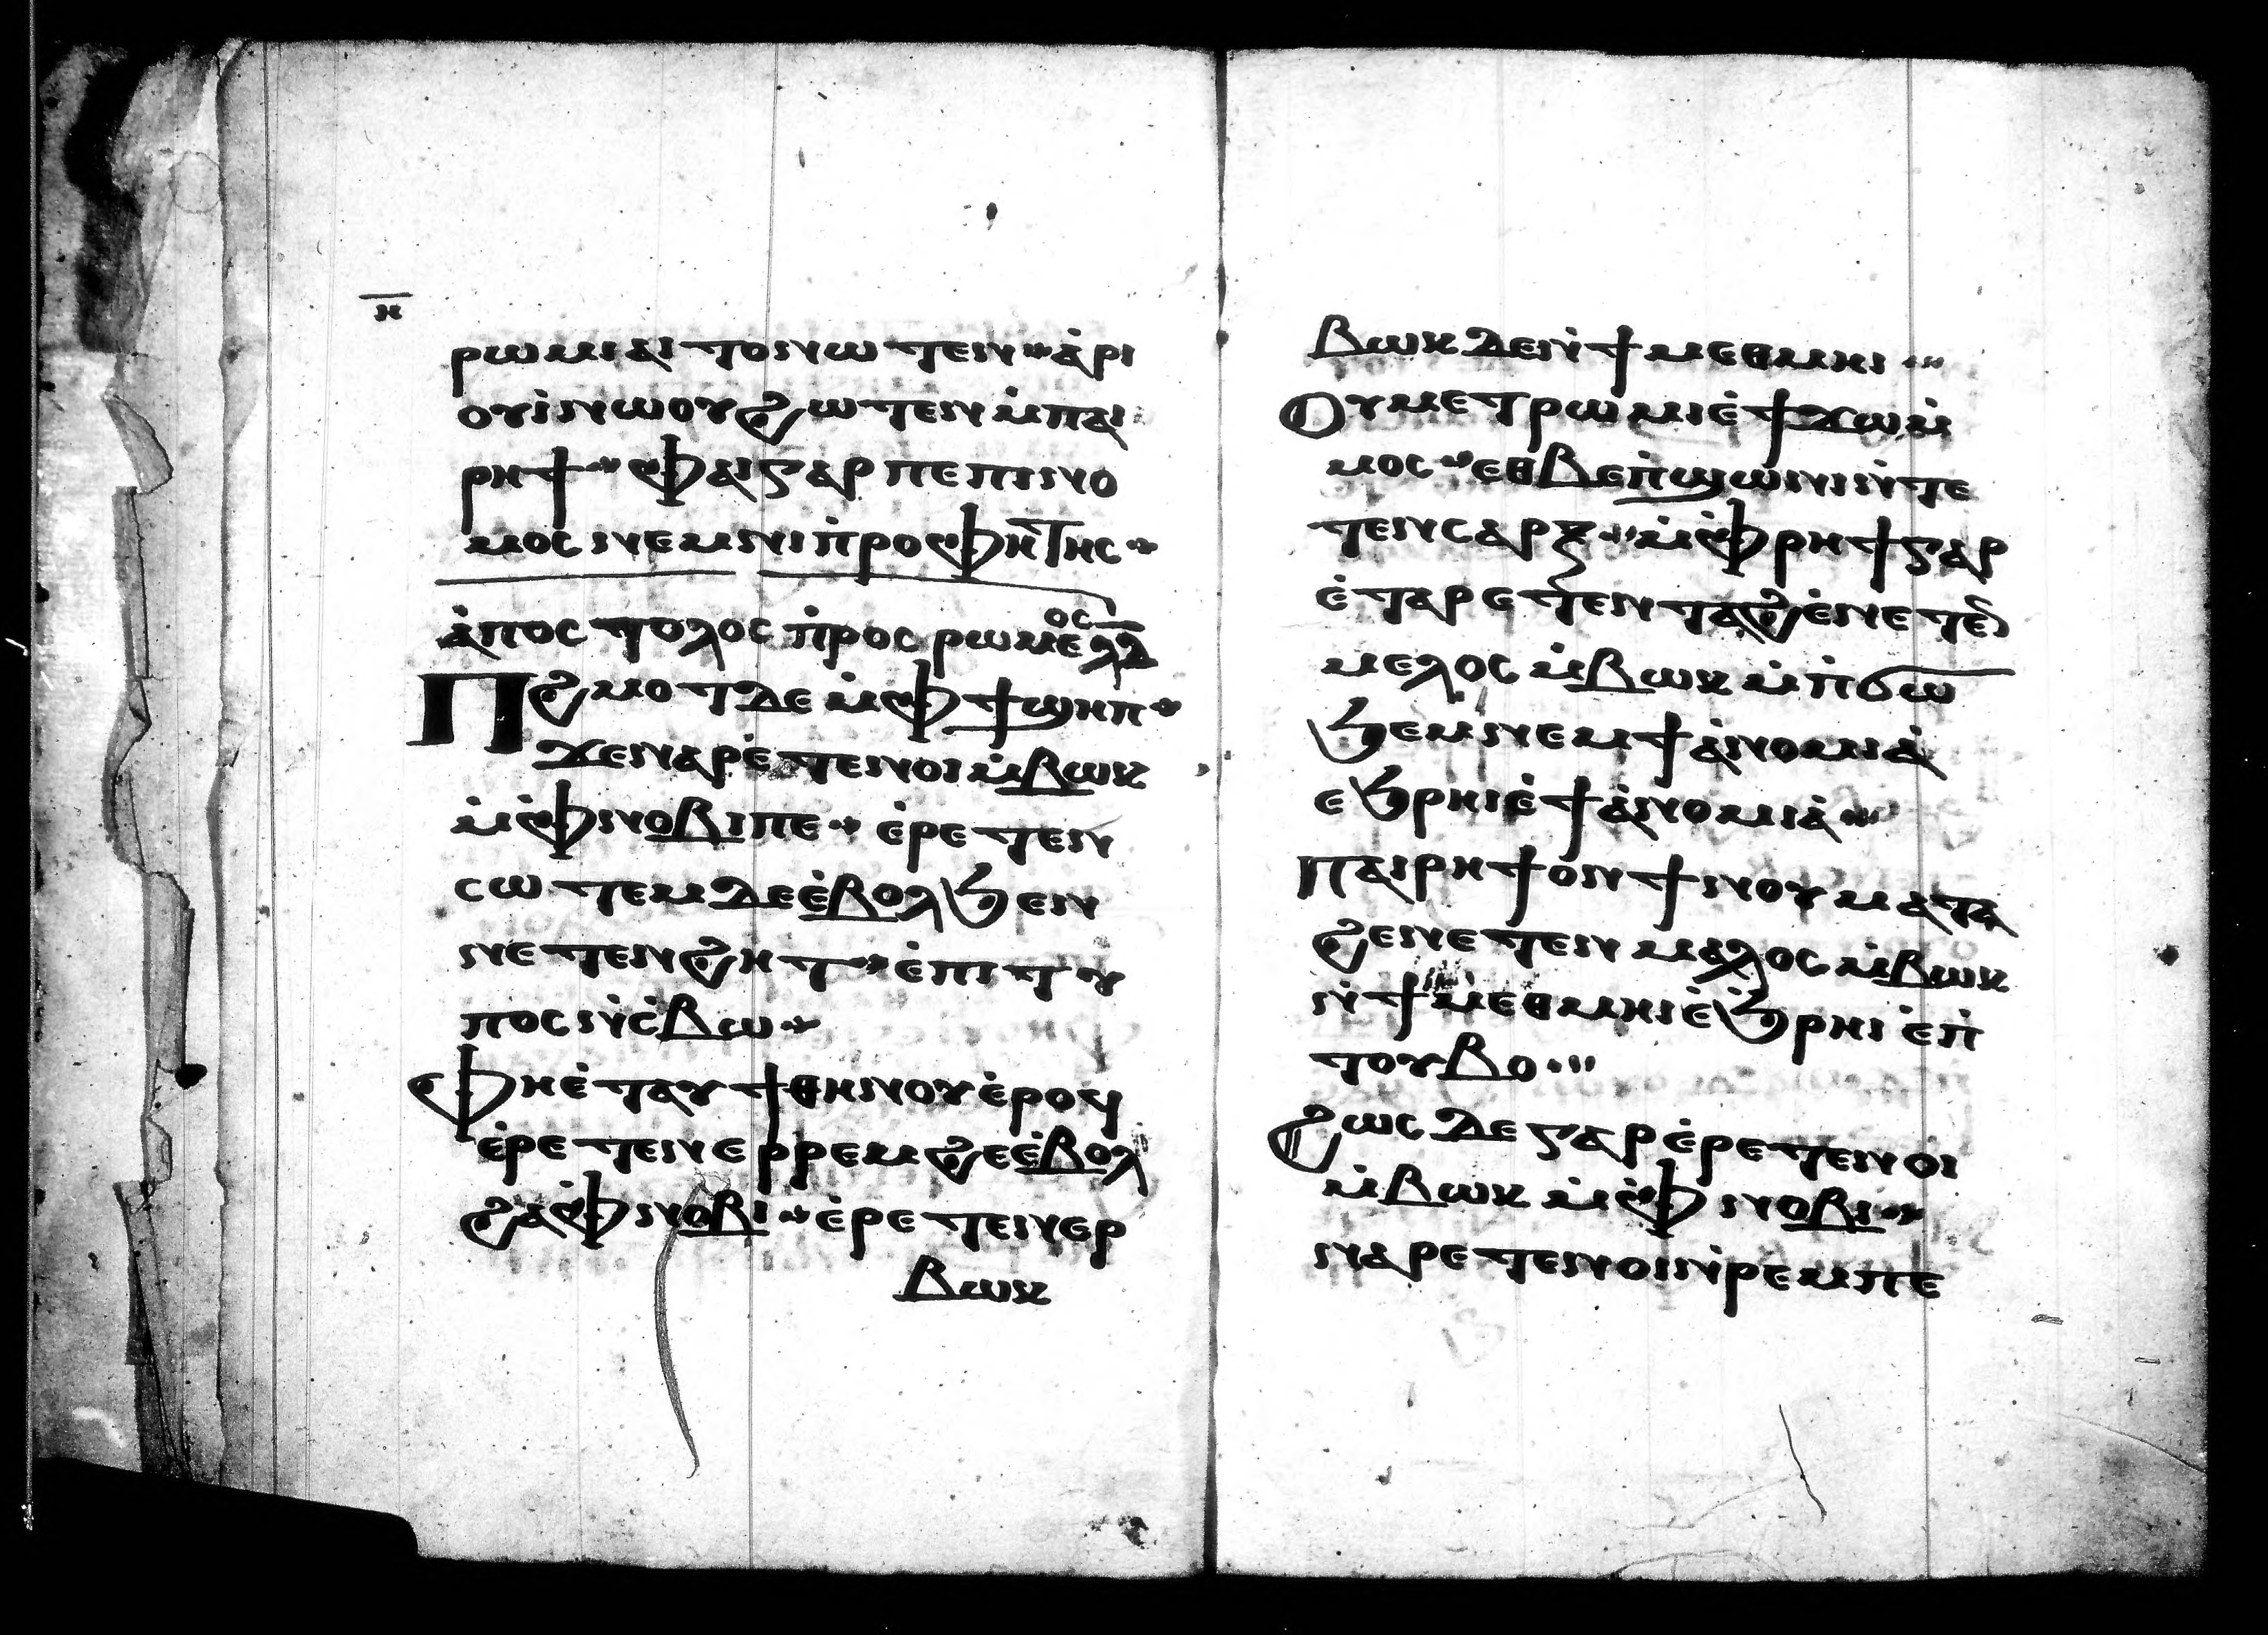 ⲏ̅
ⲣⲱⲙⲓ ⲁⲓⲧⲟⲛⲱⲧⲉⲛ ⲁ̀ⲣⲓ
ⲟⲩⲓ̀ ⲛⲱⲟⲩ ϩⲱⲧⲉⲛ ⲙ̀ⲡⲁⲓ
ⲣⲏϯ ⲫⲁⲓ ⲅⲁⲣ ⲡⲉ ⲡⲓⲛⲟ
ⲙⲟⲥ ⲛⲉⲙ ⲛⲓⲡ̀ⲣⲟⲫⲏⲧⲏⲥ
ⲁ̀ⲡⲟⲥⲧⲟⲗⲟⲥ ⲡ̀ⲣⲟⲥ ⲣⲱⲙⲉⲟⲥ ⲗⲇ
Ⲡϩⲙⲟⲧ ⲇⲉ ⲙ̀ⲫϯ ϣⲏⲡ
ϫⲉ ⲛⲁⲣⲉ̀ⲧⲉⲛⲟⲓ ⲙ̀ⲃⲱⲕ
ⲙ̀ⲫⲛⲟⲃⲓ ⲡⲉ ⲉ̀ⲣⲉⲧⲉⲛ
ⲥⲱⲧⲉⲙ ⲇⲉ ⲉ̀ⲃⲟⲗ ϧⲉⲛ
ⲛⲉⲧⲉⲛϩⲏⲧ ⲉ̀ⲡⲓⲧⲩ
ⲡⲟⲥ ⲛ̀ⲥ̀ⲃⲱ
Ⲫⲏⲉ̀ⲧⲁⲩϯⲑⲏⲛⲟⲩ ⲉ̀ⲣⲟϥ
ⲉ̀ⲣⲉⲧⲉⲛⲉⲣⲣⲉⲙϩⲉ ⲉ̀ⲃⲟⲗ
ϩⲁ ⲫⲛⲟⲃⲓ ⲉ̀ⲣⲉⲧⲉⲛⲉⲣ
ⲃⲱⲕ
Ⲃⲱⲕ ⲇⲉ ⲛ̀ϯⲙⲉⲑⲙⲏⲓ
Ⲟⲩⲙⲉⲧⲣⲱⲙⲓ ⲉ̀ϯϫⲱ ⲙ̀
ⲙⲟⲥ ⲉⲑⲃⲉ ⲡ̀ϣⲱⲛⲓ ⲛ̀ⲧⲉ
ⲧⲉⲛⲥⲁⲣⲝ ⲙ̀ⲫⲣⲏϯ ⲅⲁⲣ
ⲉ̀ⲧⲁⲣⲉⲧⲉⲛⲧⲁϩⲉ̀ ⲛⲉⲧⲉⲛ
ⲙⲉⲗⲟⲥ ⲙ̀ⲃⲱⲕ ⲙ̀ⲡ̀ϭⲱ
ϧⲉⲙ ⲛⲉⲙ ϯⲁ̀ⲛⲟⲙⲓⲁ̀
ⲉϧⲣⲏⲓ ⲉ̀ϯⲁ̀ⲛⲟⲙⲓⲁ̀
ⲡⲁⲓⲣⲏϯ ⲟⲛ ϯⲛⲟⲩ ⲙⲁⲧⲁ
ϩⲉ ⲛⲉⲧⲉⲛⲙⲁⲗⲟⲥ ⲙ̀ⲃⲱⲕ
ⲛ̀ϯⲙⲉⲑⲙⲏⲓ ⲉ̀ϧⲣⲏⲓ ⲉ̀ⲡ̀
ⲧⲟⲩⲃⲟ
Ϩⲱⲥ ⲇⲉ ⲅⲁⲣ ⲉ̀ⲣⲉⲧⲉⲛⲟⲓ
ⲙ̀ⲃⲱⲕ ⲙ̀ⲫⲛⲟⲃⲓ
ⲛⲁⲣⲉⲧⲉⲛⲟⲓ ⲛ̀ⲣⲉⲙⲡⲉ